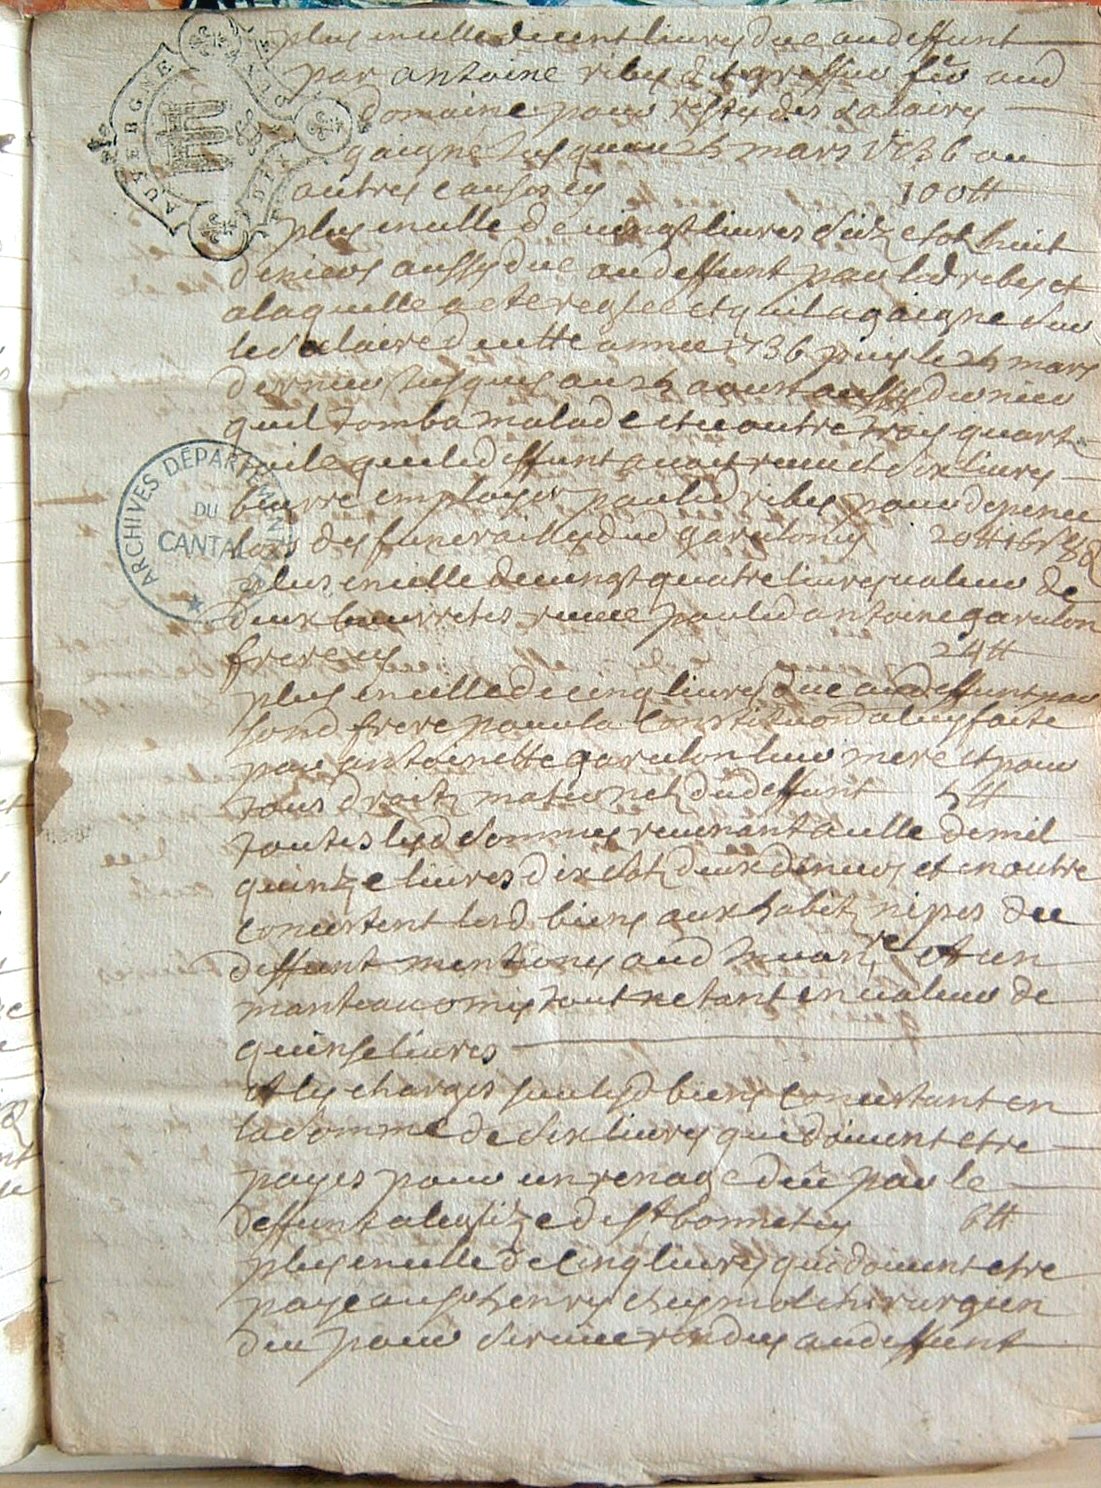 AUVERGNE
ARCHIVES DÉPARTEMENTALES
DU
CANTAL
plus en celle de cent livres due au deffunt
par antoine ribes dit gressiu aud
domaine pour reste des salaires
gaigne jusquau 25 mars 1736 ou
autres causes cy 100tt
plus en celle de vingt livres seize sols huit
deniers aussy due au deffunt par led ribes et
a laquelle a ete reglee et quil a gaigne sur
le salaire de cette annee 1736 puis le 25 mars
dernier jusques au 25 aoust aussy dernier
quil tomba malade et outre trois quarts
que led deffunt avoit receu et six livres
beurre employer par led ribes pour depence
lors des funerailles dud garulon cy 20tt 16s 8d
plus en celle de vingt quatre livres valeur de
deux bourretes receue par led antoine garulon
frere cy 24tt
plus en celle de cinq livres due au deffunt par
sond frere pour la constitution a luy faite
par antoinette garulon leur mere et pour
tous droits maternels dud deffunt 5tt
toutes lesd sommes revenant a celle de mil
quinze livres dix sols deux deniers et en outre
concistent lesd biens aux habits nipes du
deffunt mentiones aud inventre et un
manteau omis tout netant en valeur de
quinse livres
et les charges sur lesd biens concistant en
la somme de six livres qui doivent etre
payes pour un renage deu par le
deffunt a leglize de st bonnet cy 6tt
plus en celle de cinq livres qui doivent etre
paye au sr henry cheymol chirurgien
deu pour service rendus au deffunt